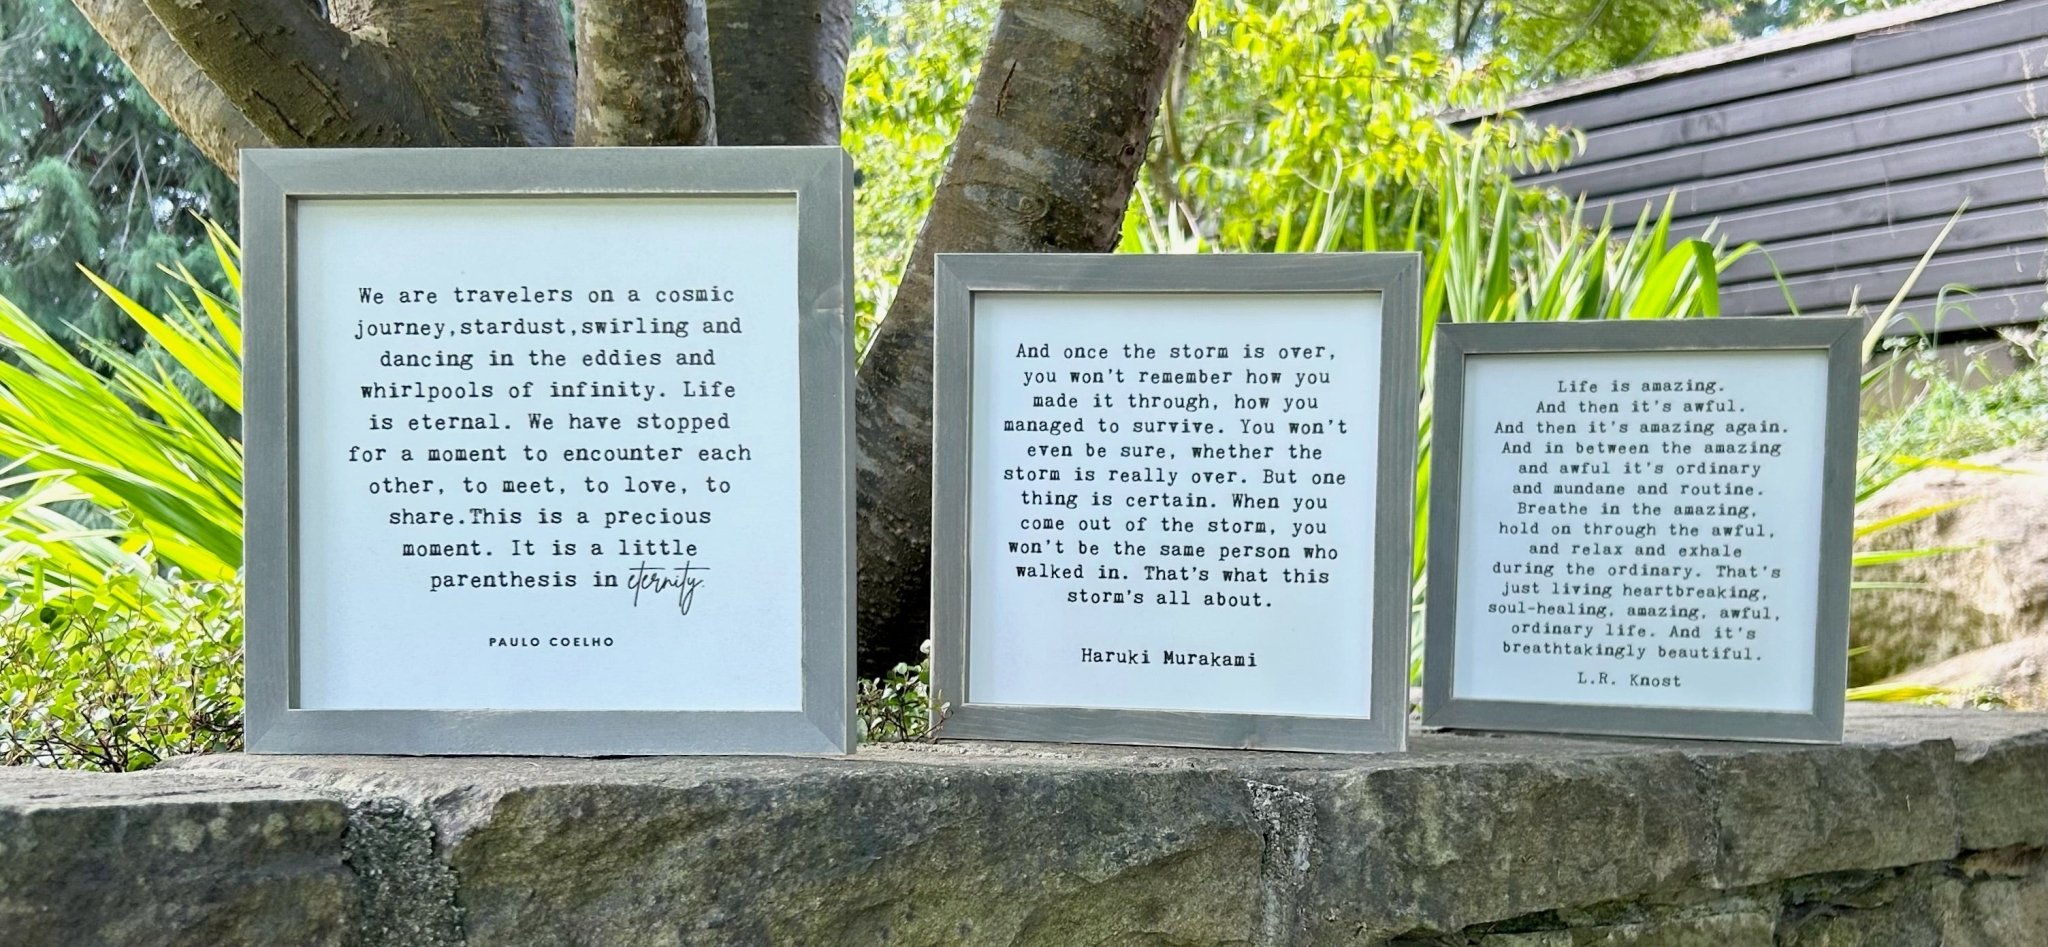 We are travelers on a cosmic
journey,stardust,swirling and
dancing in the eddies and
whirlpools of infinity. Life
is eternal. We have stopped
for a moment to encounter each
other, to meet, to love, to
share.This is a precious
moment. It is a little
parenthesis in eternity.
PAULO COELHO
And once the storm is over,
you won't remember how you
made it through, how you
managed to survive. You won't
even be sure, whether the
storm is really over. But one
thing is certain. When you
come out of the storm, you
won't be the same person who
walked in. That's what this
storm's all about.
Haruki Murakami
Life is amazing.
And then it's awful.
And then it's amazing again.
And in between the amazing
and awful it's ordinary
and mundane and routine.
Breathe in the amazing,
hold on through the awful,
and relax and exhale
during the ordinary. That's
just living heartbreaking,
soul-healing, amazing, awful,
ordinary life. And it's
breathtakingly beautiful.
L.R. Knost